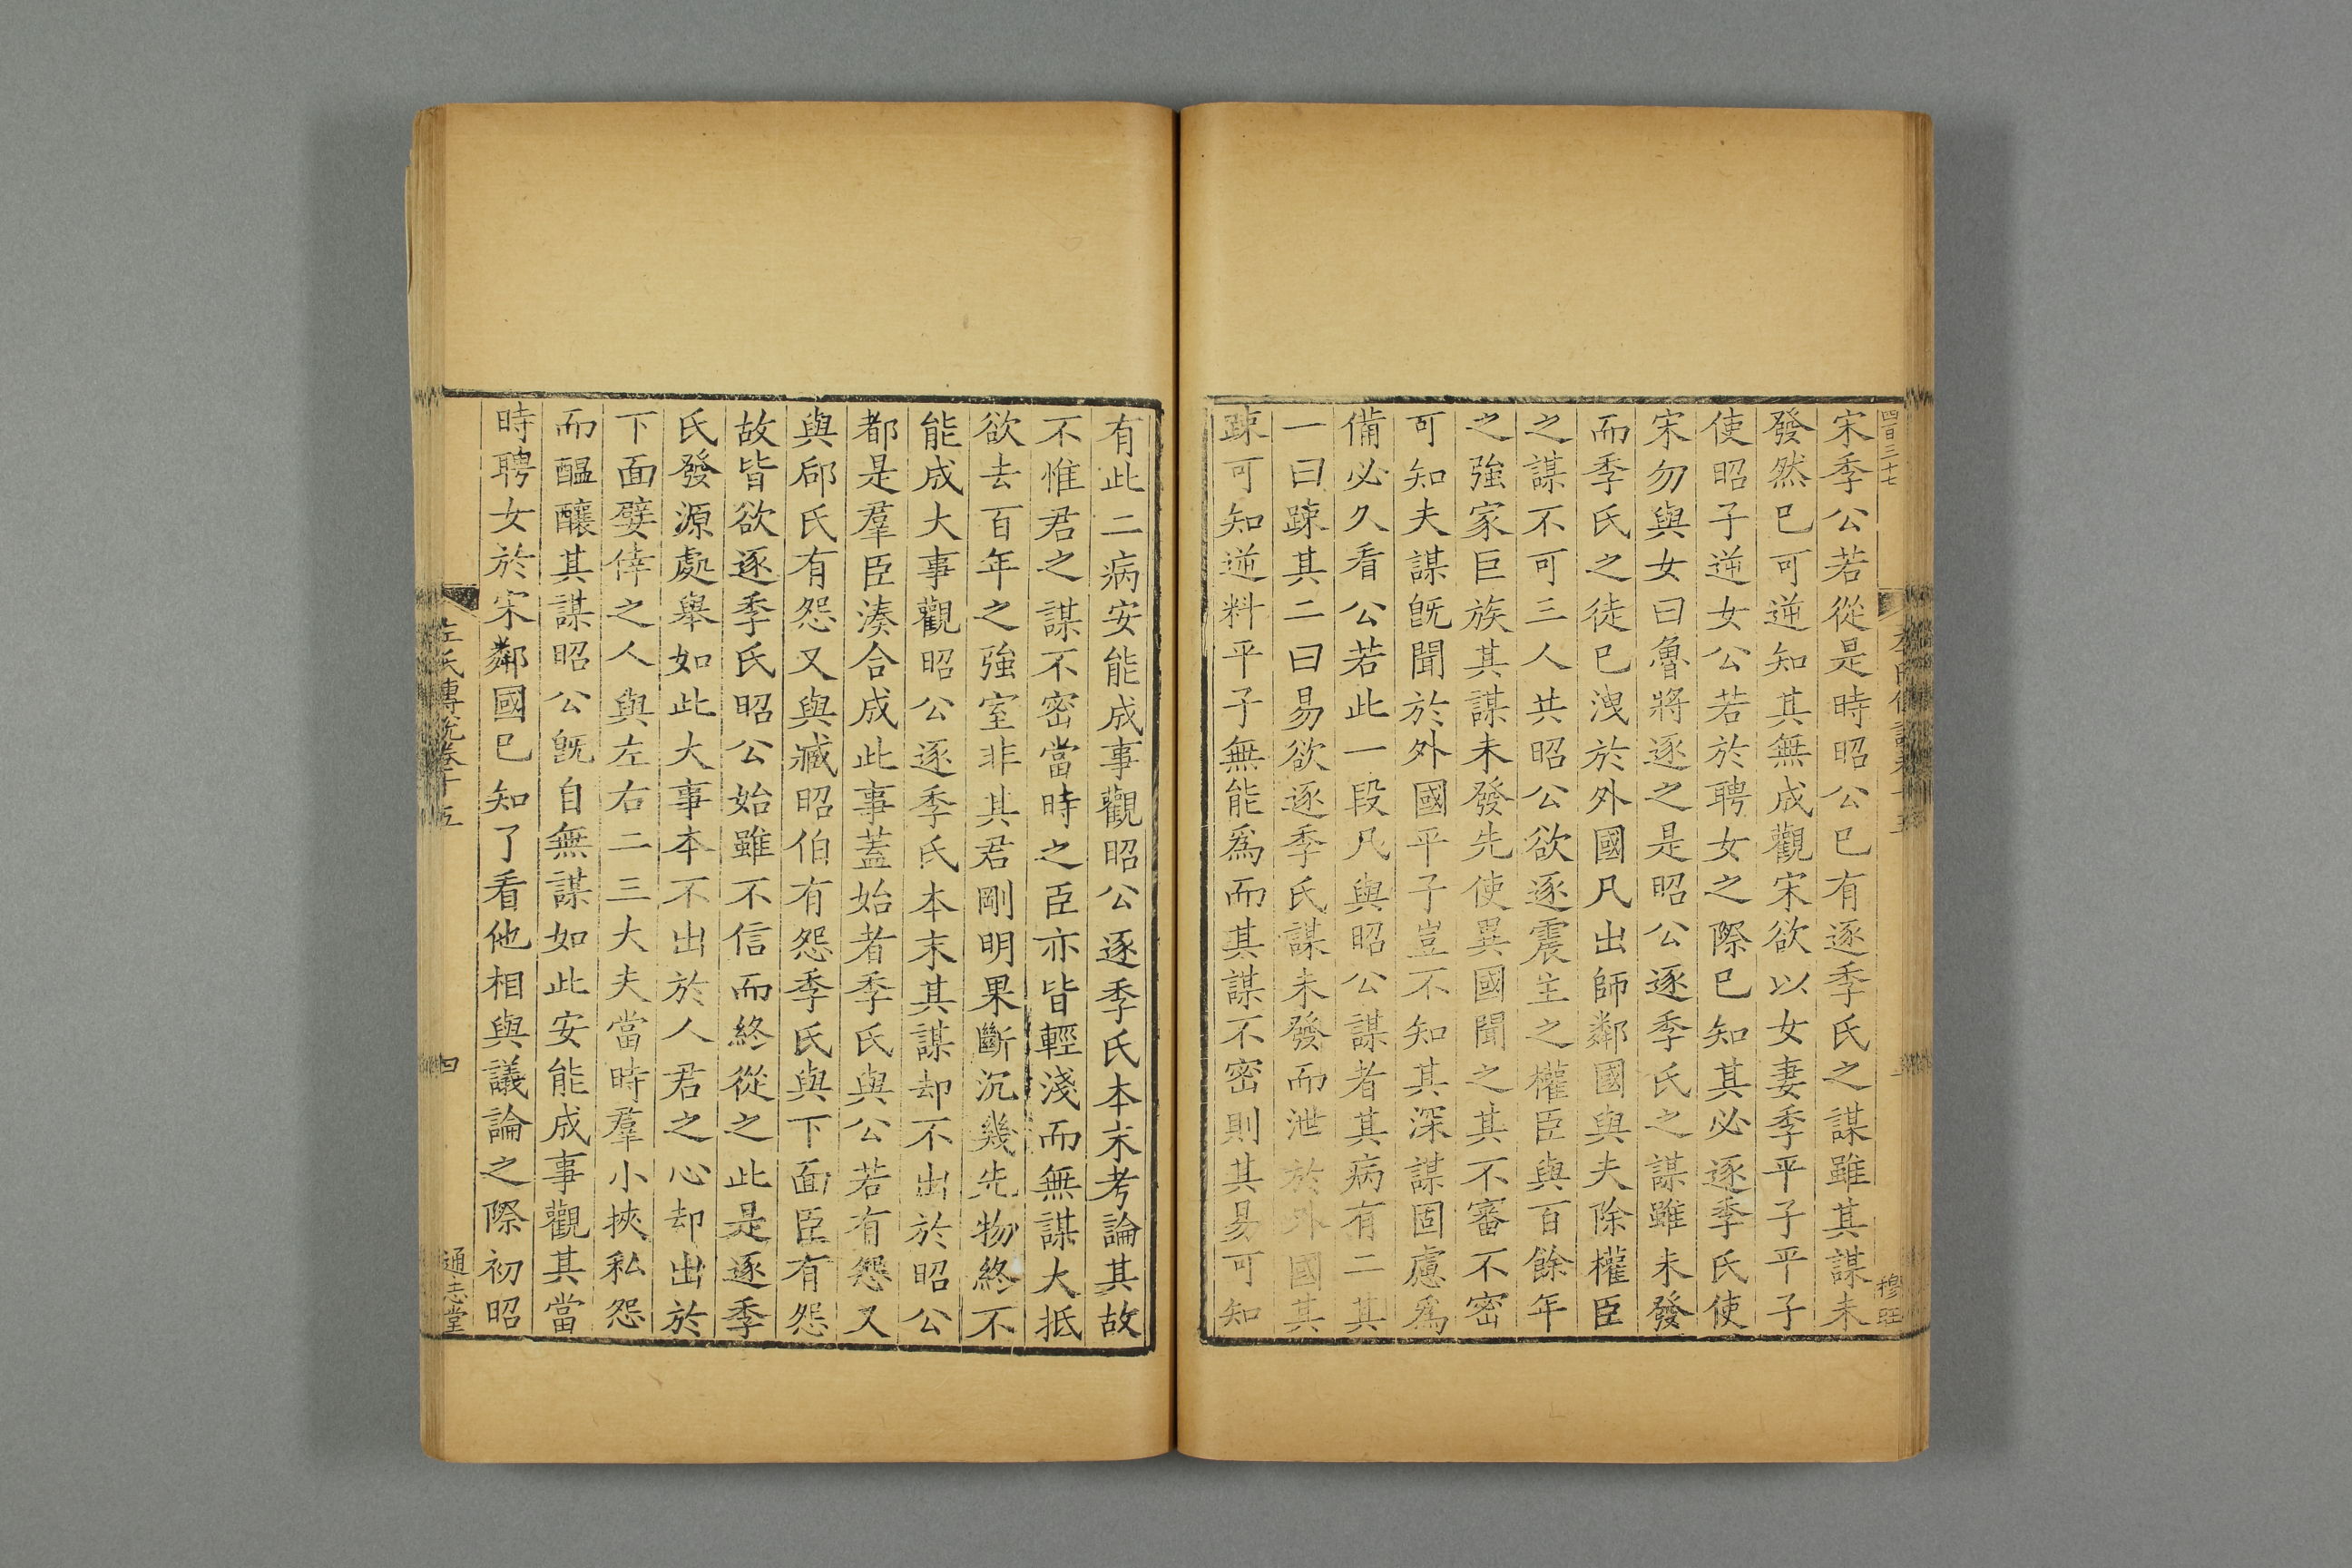 四百三十七
穆旺
宋季公若從是時昭公巳有逐季氏之謀雖其謀未
發然巳可逆知其無成觀宋欲以女妻季平子平子
使昭子逆女公若於聘女之際巳知其必逐季氏使
宋勿與女曰魯將逐之是昭公逐季氏之謀雖未發
而季氏之徒巳洩於外國凡出師鄰國與夫除權臣
之謀不可三人共昭公欲逐震主之權臣與百餘年
之強家巨族其謀未發先使異國聞之其不審不密
可知夫謀旣聞於外國平子豈不知其深謀固慮爲
備必久看公若此一段凡與昭公謀者其病有二其
一曰踈其二曰易欲逐季氏謀未發而泄於外國其
踈可知逆料平子無能爲而其謀不密則其易可知
有此二病安能成事觀昭公逐季氏本末考論其故
不惟君之謀不密當時之臣亦皆輕淺而無謀大抵
欲去百年之強室非其君剛明果斷沉幾先物終不
能成大事觀昭公逐季氏本末其謀却不出於昭公
都是羣臣湊合成此事蓋始者季氏與公若有怨又
與郈氏有怨又與臧昭伯有怨季氏與下面臣有怨
故皆欲逐季氏昭公始雖不信而終從之此是逐季
氏發源處舉如此大事本不出於人君之心却出於
下面嬖倖之人與左右二三大夫當時羣小挾私怨
而醞釀其謀昭公旣自無謀如此安能成事觀其當
時聘女於宋鄰國巳知了看他相與議論之際初昭
左氏傳說卷十五
四
通志堂